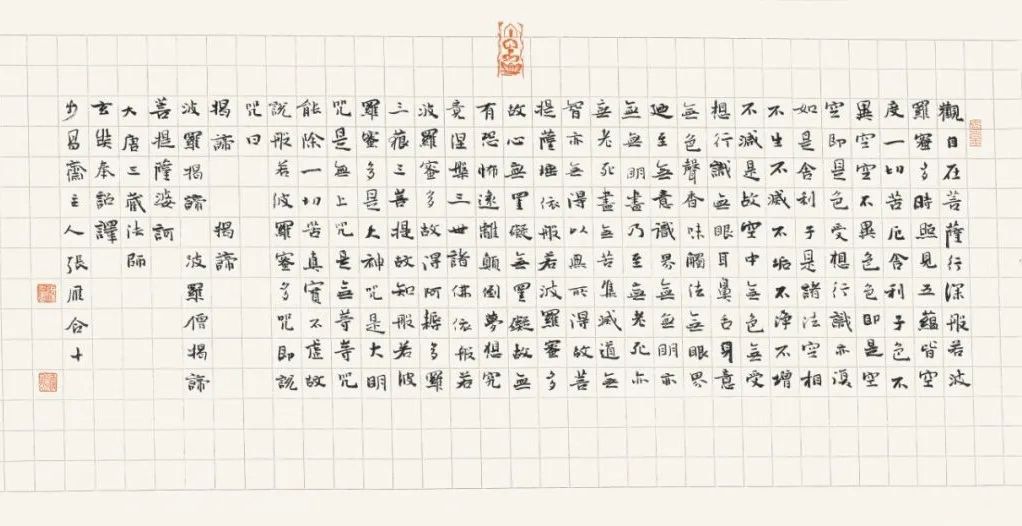 觀自在菩薩行深般若波
羅蜜多時照見五蘊皆空
度一切苦厄舍利子色不
異空空不異色色即是空
空即是色受想行識亦復
如是舍利子是諸法空相
不生不滅不垢不淨不增
不減是故空中無色無受
想行識無眼耳鼻舌身意
無色聲香味觸法無眼界
迺至無意識界無無明亦
無無明盡乃至無老死亦
無老死盡無苦集滅道無
智亦無得以無所得故菩
提薩埵依般若波羅蜜多
故心無罣礙無罣礙故無
有恐怖遠離顛倒夢想究
竟涅槃三世諸佛依般若
波羅蜜多故得阿耨多羅
三藐三菩提故知般若波
羅蜜多是大神咒是大明
咒是無上咒是無等等咒
能除一切苦真實不虛故
說般若波羅蜜多咒即說
咒曰
揭諦 揭諦
波羅揭諦 波羅僧揭諦
菩提薩婆訶
大唐三藏法師
玄奘奉詔譯
昌齋主人張雁合十